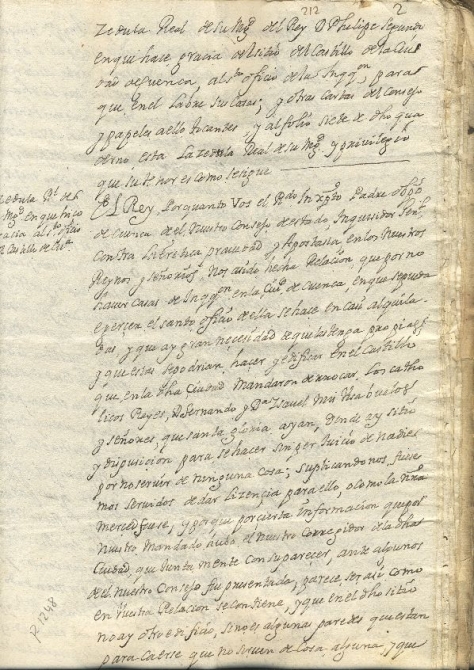 212
2
Zedula Real de su Mgd. del Rey D Phelipe Segundo
en que hase gracia del sitio del Castillo de la Ciu
dad de Cuenca, al sto. officio de la Inqqon, para
que en el labre sus casas; y otras cartas del Consejo
y papeles a ello tocantes, y al folio siete de dho qua
derno esta la zedula Real de su Mgd. y privilegio
que su thenor es como se sigue
Zedula Rl. de S.
Mgd. en que hizo
gracia al sto. offio
El Rey Por quanto Vos el Rdo In xpto Padre obpo
de Cuenca de el nuestro Consejo de estado, Inquisidor Genl.
contra la heretica pravedad, y Apostasia en los nuestros
Reynos, y señorios, Nos aveis hecho Relacion, que por no
haver Casas de Inqqon en la Ciud de Cuenca en que se pueda
exerser el santo officio de ella se hase en casas alquila
das, y que ay gran necesidad de que las tenga propias
y que estas se podrian hacer y edificar en el Castillo
que en la dha Ciudad mandaron derrocar, los catho
licos Reyes, D Fernando, y Da Ysavel mis Visabuelos
y señores, que santa gloria ayan, donde ay sitio
y dispusicion para se hacer sin perjuicio de nadie
por no servir de ninguna cosa; suplicandonos fuese
mos servidos de dar lizencia para ello, o como la nra
merced fuese, y porque por cierta informacion que por
nuestro mandado huvo el nuestro Corregidor de la dha
Ciudad, que junta mente con su parecer, ante algunos
de el nuestro Consejo fue presentada, parece ser asi como
en vuestra Relacion se contiene, y que en el dho sitio
no ay otro edificio, sino es algunas paredes que estan
para caerse que no sirven de cosa alguna, y que
R. 1248